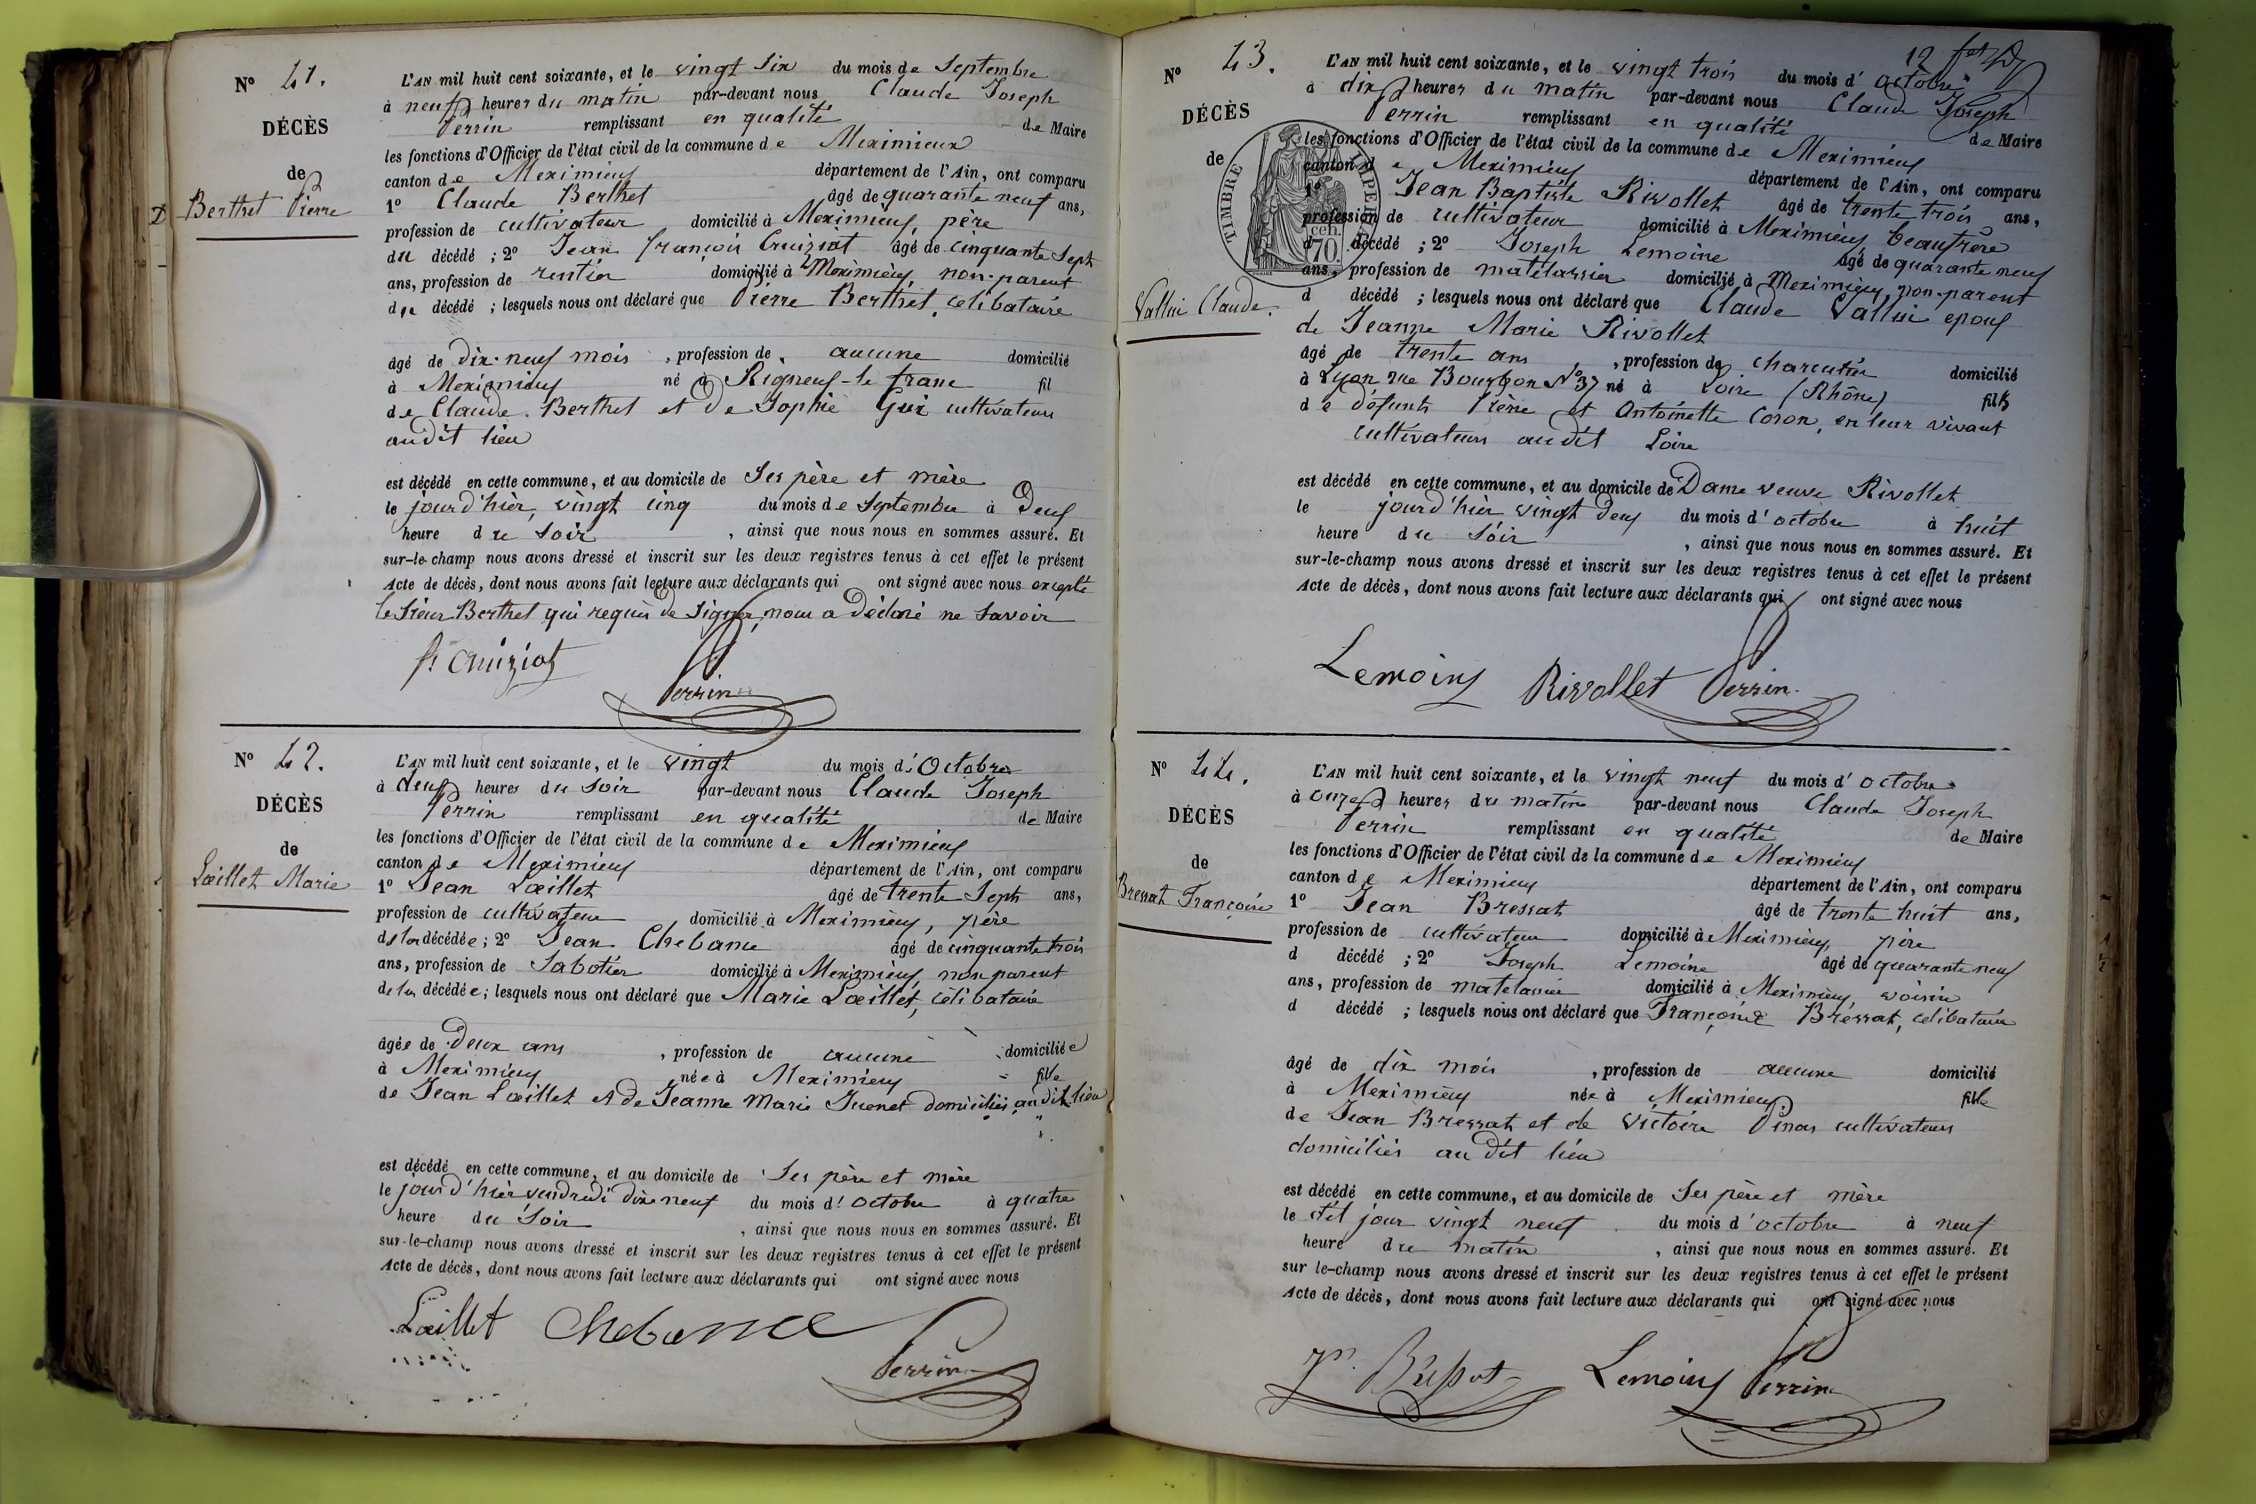 N° 41.
DÉCÈS
de
Berthet Pierre
L'AN mil huit cent soixante, et le vingt six du mois de Septembre
à neuf heures du matin par-devant nous Claude Joseph
Perrin remplissant en qualité de Maire
les fonctions d'Officier de l'état civil de la commune de Meximieux
canton de Meximieux département de l'Ain, ont comparu
1° Claude Berthet âgé de quarante neuf ans,
profession de cultivateur domicilié à Meximieux, père
du décédé ; 2° Jean françois Cruiziat âgé de cinquante Sept
ans, profession de rentier domicilié à Meximieux, non-parent
du décédé ; lesquels nous ont déclaré que Pierre Berthet, celibataire
âgé de dix-neuf mois , profession de aucune domicilié
à Meximieux né à Rigneux-le franc fil
de Claude Berthet et de Sophie Gui cultivateurs
audit lieu
est décédé en cette commune, et au domicile de Ses père et mère
le jour d'hier, vingt cinq du mois de Septembre à Deux
heure du Soir , ainsi que nous nous en sommes assuré. Et
sur-le-champ nous avons dressé et inscrit sur les deux registres tenus à cet effet le présent
Acte de décès, dont nous avons fait lecture aux déclarants qui ont signé avec nous excepté
le Sieur Berthet qui requis de Signer, nous a Déclaré ne Savoir
f. Cruiziat Perrin
N° 42.
DÉCÈS
de
Lœillet Marie
L'AN mil huit cent soixante, et le vingt du mois d'Octobre
à deux heures du Soir par-devant nous Claude Joseph
Perrin remplissant en qualité de Maire
les fonctions d'Officier de l'état civil de la commune de Meximieux
canton de Meximieux département de l'Ain, ont comparu
1° Jean Lœillet âgé de trente Sept ans,
profession de cultivateur domicilié à Meximieux, père
de la décédée ; 2° Jean Chebance âgé de cinquante trois
ans, profession de Sabotier domicilié à Meximieux, non parent
de la décédée ; lesquels nous ont déclaré que Marie Lœillet, célibataire
âgée de Deux ans , profession de aucune domiciliée
à Meximieux née à Meximieux fille
de Jean Lœillet et de Jeanne Marie Juenet domiciliés au dit lieu
est décédé en cette commune, et au domicile de Ses père et mère
le jour d'hier vendredi dix neuf du mois d'octobre à quatre
heure du Soir , ainsi que nous nous en sommes assuré. Et
sur-le-champ nous avons dressé et inscrit sur les deux registres tenus à cet effet le présent
Acte de décès, dont nous avons fait lecture aux déclarants qui ont signé avec nous
Lœillet Chebance
Perrin
12
N° 43.
DÉCÈS
de
TIMBRE IMPERIAL
cen. 70.
Vallui Claude.
L'AN mil huit cent soixante, et le vingt trois du mois d'octobre
à dix heures du matin par-devant nous Claude Joseph
Perrin remplissant en qualité de Maire
les fonctions d'Officier de l'état civil de la commune de Meximieux
canton de Meximieux département de l'Ain, ont comparu
1° Jean Baptiste Rivollet âgé de trente trois ans,
profession de cultivateur domicilié à Meximieux beaufrère
d décédé ; 2° Joseph Lemoine âgé de quarante neuf
ans, profession de matelassier domicilié à Meximieux non-parent
d décédé ; lesquels nous ont déclaré que Claude Vallui epoux
de Jeanne Marie Rivollet
âgé de trente ans , profession de charcutier domicilié
à Lyon rue Bourbon N° 37 né à Loire (Rhône) fils
de défunts Pierre et Antoinette Coron, en leur vivant
cultivateurs au dit Loire
est décédé en cette commune, et au domicile de Dame veuve Rivollet
le jour d'hier vingt deux du mois d'octobre à huit
heure du Soir , ainsi que nous nous en sommes assuré. Et
sur-le-champ nous avons dressé et inscrit sur les deux registres tenus à cet effet le présent
Acte de décès, dont nous avons fait lecture aux déclarants qui ont signé avec nous
Lemoine Rivollet Perrin
N° 44.
DÉCÈS
de
Bressat Françoise
L'AN mil huit cent soixante, et le vingt neuf du mois d'octobre
à onze heures du matin par-devant nous Claude Joseph
Perrin remplissant en qualité de Maire
les fonctions d'Officier de l'état civil de la commune de Meximieux
canton de Meximieux département de l'Ain, ont comparu
1° Jean Bressat âgé de trente huit ans,
profession de cultivateur domicilié à Meximieux, père
d décédé ; 2° Joseph Lemoine âgé de quarante neuf
ans, profession de matelassier domicilié à Meximieux, voisin
d décédé ; lesquels nous ont déclaré que Françoise Bressat, célibataire
âgé de dix mois , profession de aucune domicilié
à Meximieux née à Meximieux fille
de Jean Bressat et de Victoire Pinas cultivateurs
domiciliés au dit lieu
est décédé en cette commune, et au domicile de Ses père et mère
le dit jour vingt neuf du mois d'octobre à neuf
heure du matin , ainsi que nous nous en sommes assuré. Et
sur le-champ nous avons dressé et inscrit sur les deux registres tenus à cet effet le présent
Acte de décès, dont nous avons fait lecture aux déclarants qui ont signé avec nous
Jn. Bressat Lemoine Perrin